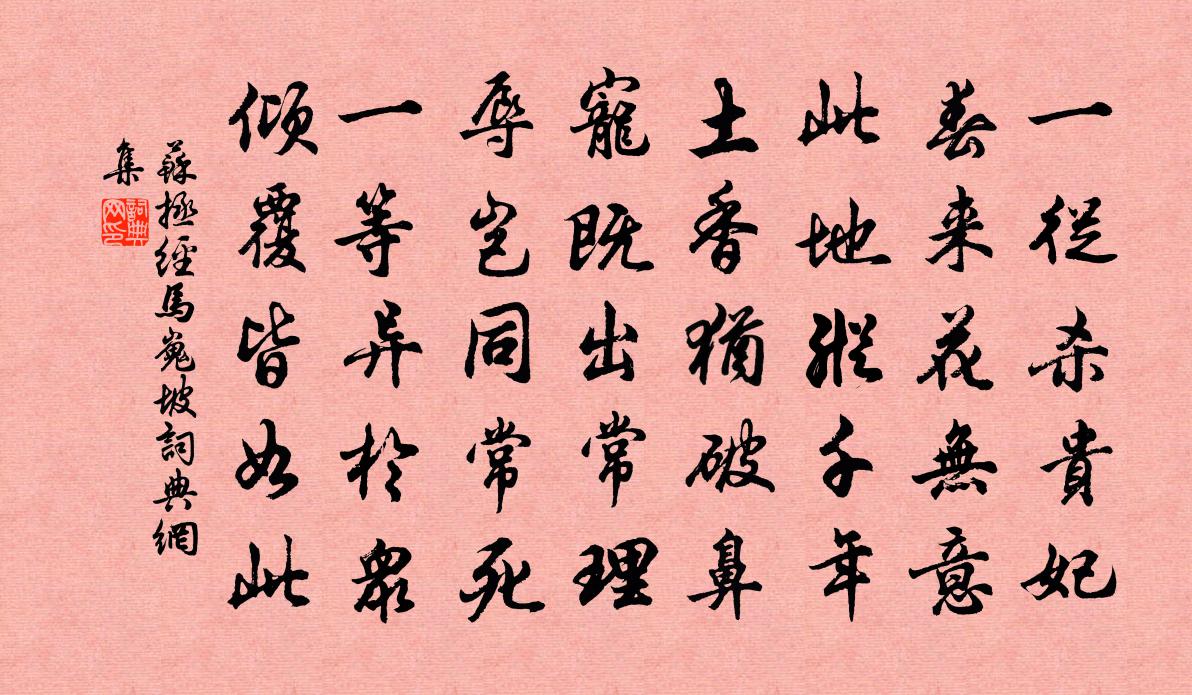 一從杀貴妃
春来花無意
此地縱千年
土香猶破鼻
寵既出常理
辱岂同常死
一等异於眾
傾覆皆如此
蘇拯經馬嵬坡詞典網
集
詞典
网印